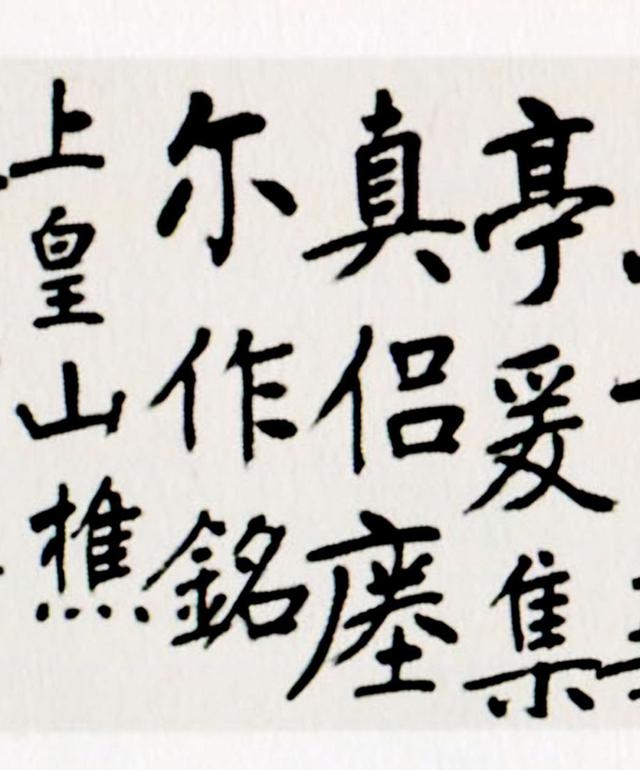 亭爰集
真侣瘞
尔作銘
上皇山樵